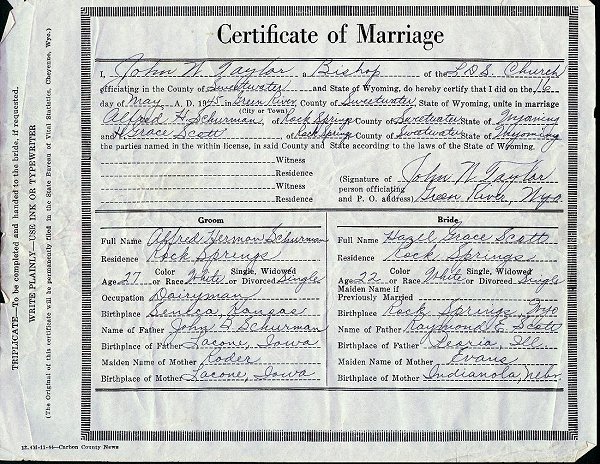 Certificate of Marriage
I, John N. Taylor, a Bishop of the L.D.S. Church
officiating in the County of Sweetwater and State of Wyoming, do hereby certify that I did on the 16
day of May A. D. 1945 in Green River, County of Sweetwater, State of Wyoming, unite in marriage
(City or Town)
Alfred H. Schurman, of Rock Springs County of Sweetwater State of Wyoming
and H. Grace Scott of Rock Springs County of Sweetwater State of Wyoming
the parties named in the within license, in said County and State according to the laws of the State of Wyoming.
Witness
Residence
Witness
Residence
(Signature of John N. Taylor
person officiating
and P. O. address) Green River, Wyo
Groom
Full Name Alfred Hermon Schurman
Residence Rock Springs
Age 27 Color or Race White Single, Widowed or Divorced Single
Occupation Dairyman
Birthplace Seneca, Kansas
Name of Father John G. Schurman
Birthplace of Father Lacone, Iowa
Maiden Name of Mother Koder
Birthplace of Mother Lacone, Iowa
Bride
Full Name Hazel Grace Scott
Residence Rock Springs
Age 22 Color or Race White Single, Widowed or Divorced Single
Maiden Name if
Previously Married
Birthplace Rock Springs, Wyo
Name of Father Raymond E. Scott
Birthplace of Father Pearia, Ill
Maiden Name of Mother Evans
Birthplace of Mother Indianola, Nebr.
TRIPLICATE—To be completed and handed to the bride, if requested.
WRITE PLAINLY—USE INK OR TYPEWRITER
(The Original of this certificate will be permanently filed in the State Bureau of Vital Statistics, Cheyenne, Wyo.)
12. CM-11-44—Carbon County News